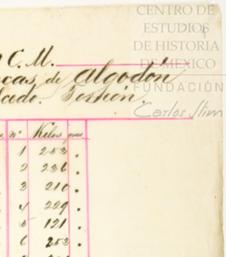 CENTRO DE
ESTUDIOS
DE HISTORIA
DE MEXICO
FUNDACIÓN
Carlos Slim
C. M.
de Algodón
Nº Kilos
1 253
2 236
3 210
4 229
5 121
6 253